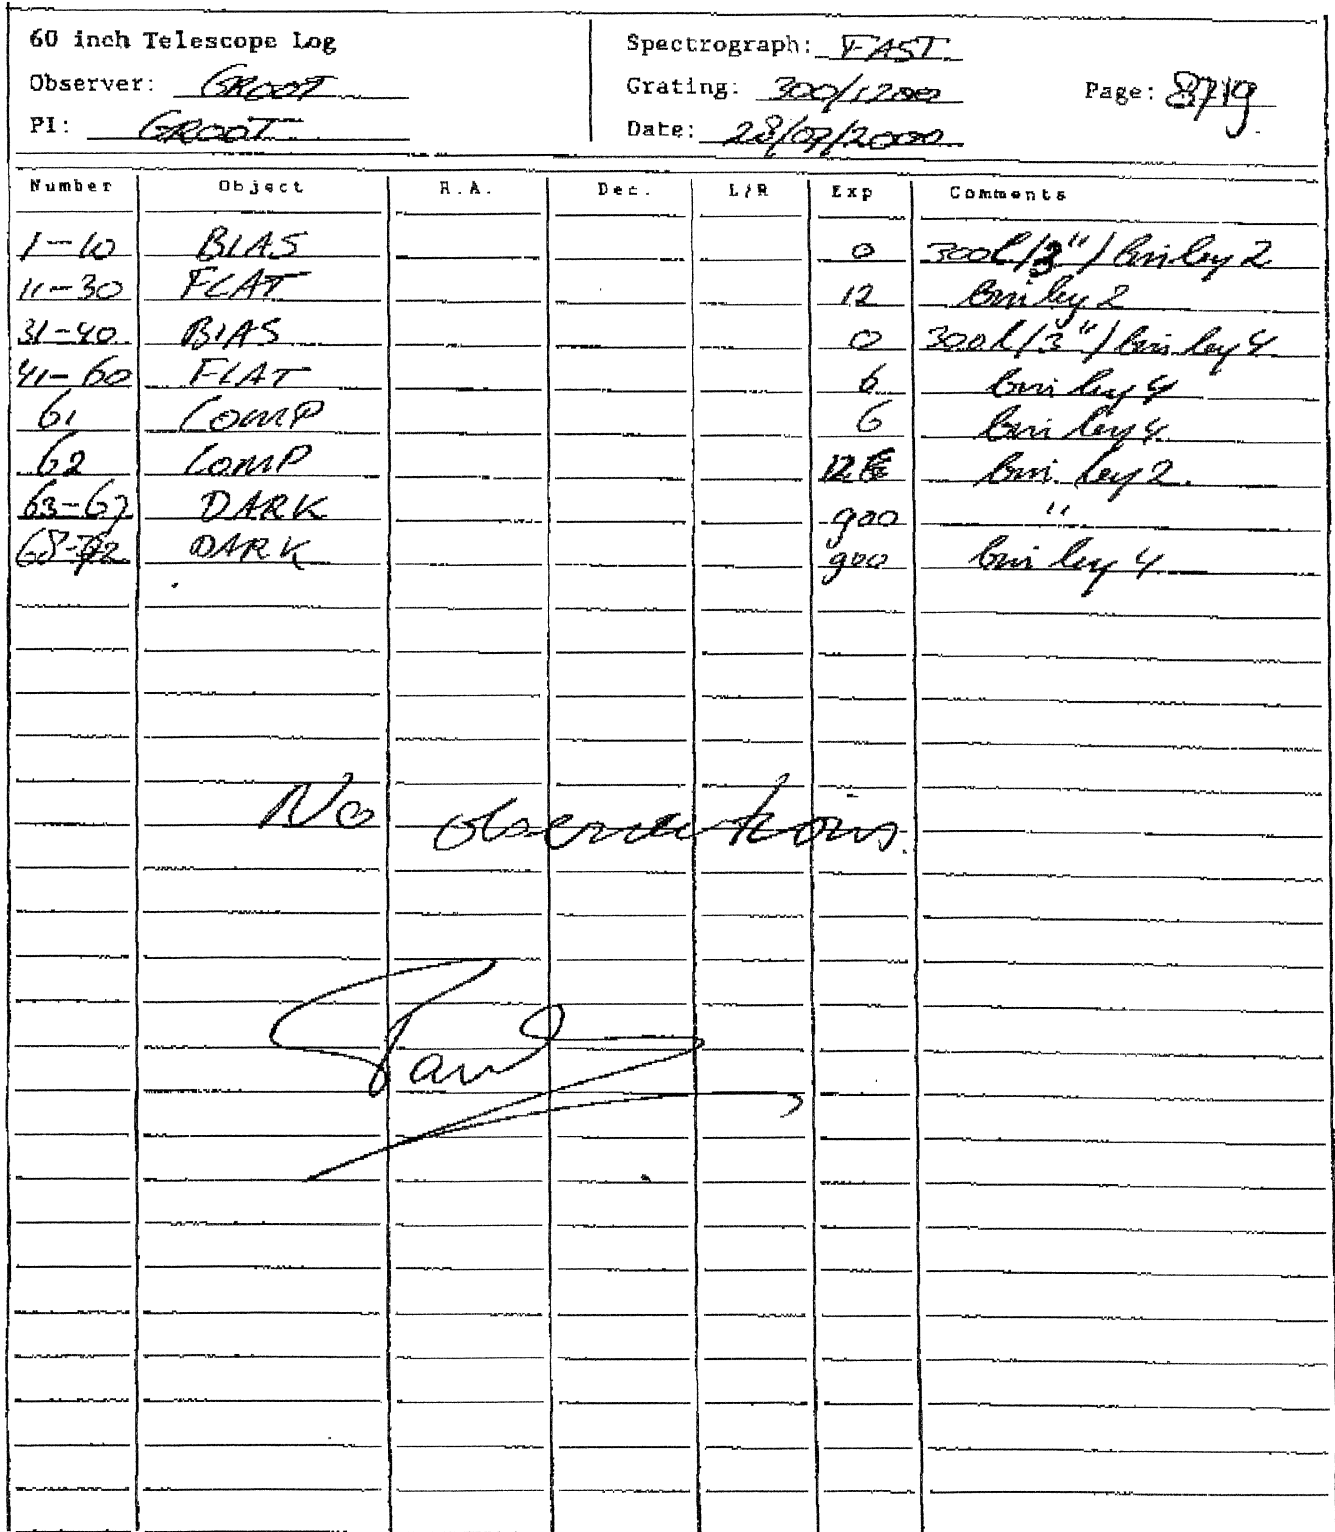 60 inch Telescope Log
Observer: GROOT
PI: GROOT
Spectrograph: FAST
Grating: 300/1200
Date: 28/07/2000
Page: 8719
Number Object R.A. Dec. L/R Exp Comments
1-10 BIAS 0 300l/3"/ bin by 2
11-30 FLAT 12 bin by 2
31-40 BIAS 0 300l/3"/ bin by 4
41-60 FLAT 6 bin by 4
61 COMP 6 bin by 4
62 COMP 12 bin by 2.
63-67 DARK 900 "
68-72 DARK 900 bin by 4
No observations.
Paul